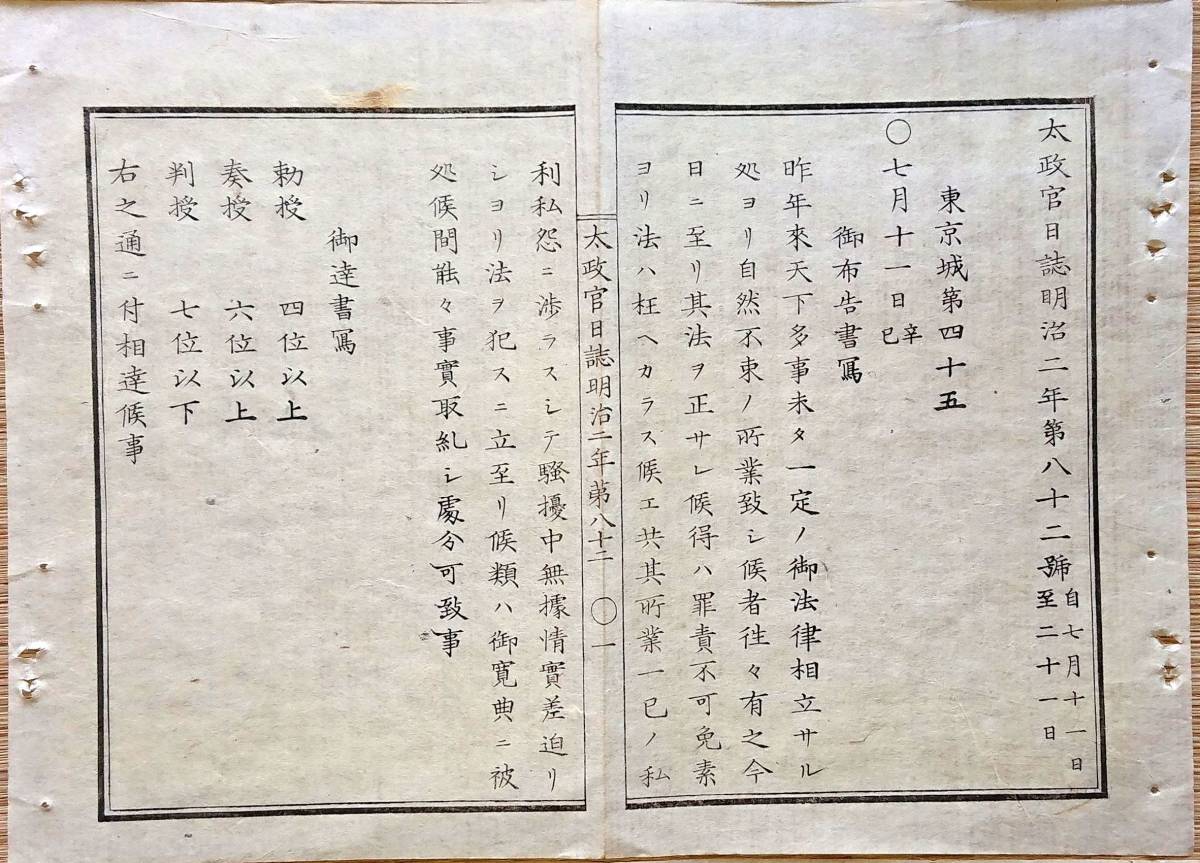 太政官日誌明治二年第八十二號 自七月十一日
至二十一日
東京城第四十五
〇七月十一日 辛巳
御布告書寫
昨年來天下多事未タ一定ノ御法律相立サル
処ヨリ自然不束ノ所業致シ候者徃々有之今
日ニ至リ其法ヲ正サレ候得ハ罪責不可免素
ヨリ法ハ枉ヘカラス候エ共其所業一已ノ私
太政官日誌明治二年第八十二 〇一
利私怨ニ渉ラスシテ騷擾中無據情實差迫リ
シヨリ法ヲ犯スニ立至リ候類ハ御寛典ニ被
処候間能々事實取糺シ處分可致事
御達書寫
勅授 四位以上
奏授 六位以上
判授 七位以下
右之通ニ付相達候事